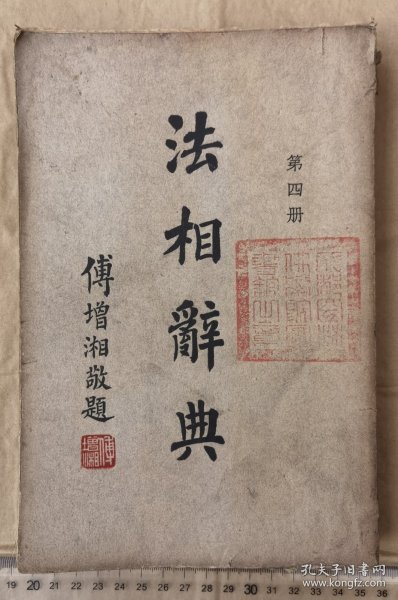 第四册
法相辭典
傅增湘敬題
傅增湘
19 20 21 22 23 24 25 26 27 28 29 30 31 32 33 34 35 36
孔夫子旧书网
www.kongfz.com